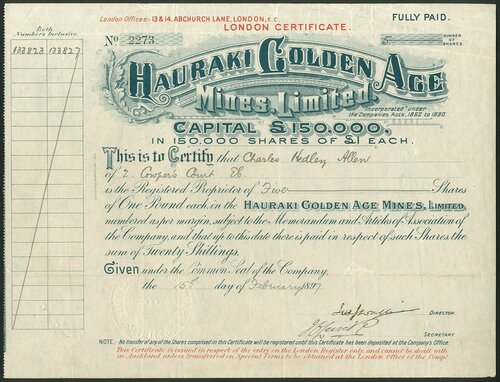 London Offices:- 13 & 14, ABCHURCH LANE, LONDON, E.C.
LONDON CERTIFICATE.
FULLY PAID.
Both Numbers Inclusive.
133823 133827
No 2273
5 NUMBER OF SHARES
HAURAKI GOLDEN AGE
Mines, Limited.
Incorporated under the Companies Acts, 1882 to 1890.
CAPITAL £150,000,
IN 150,000 SHARES OF £1 EACH.
This is to Certify that Charles Hedley Allen
of 2. Cowpers Court EC
is the Registered Proprietor of Five Shares
of One Pound each, in the HAURAKI GOLDEN AGE MINES, LIMITED,
numbered as per margin, subject to the Memorandum and Articles of Association
of the Company, and that up to this date there is paid in respect of such Shares, the
sum of Twenty Shillings.
Given under the Common Seal of the Company,
the 15th day of February 1897
DIRECTOR
SECRETARY
NOTE.- No transfer of any of the Shares comprised in this Certificate will be registered until this Certificate has been deposited at the Company's Office.
This Certificate is issued in respect of the entry on the London Register only, and cannot be dealt with
in Auckland unless transferred on Special Forms to be obtained at the London Office of the Comp?